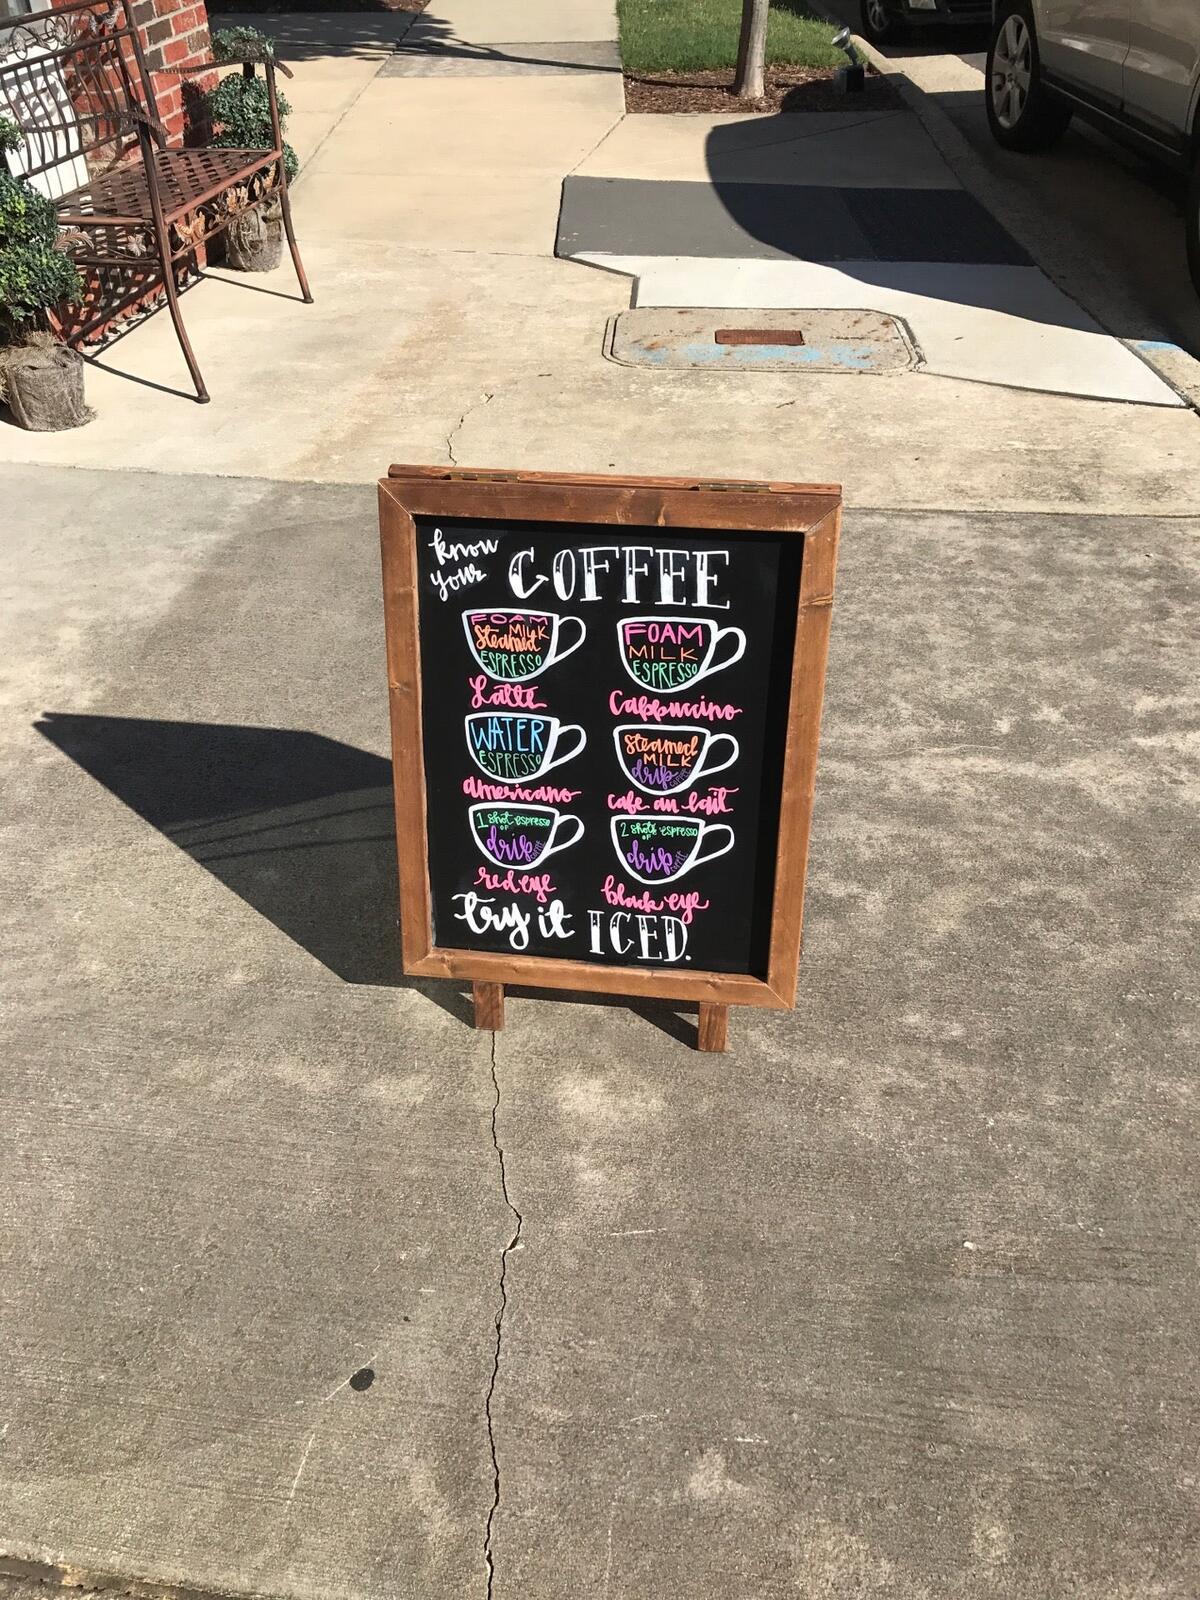 know
your COFFEE
FOAM
MILK
Steamed
ESPRESSO
Latte
FOAM
MILK
ESPRESSO
Cappuccino
WATER
ESPRESSO
americano
Steamed
MILK
drip
COFFEE
cafe au lait
1 shot espresso
OF
drip
COFFEE
red eye
2 shots espresso
OF
drip
COFFEE
black eye
try it ICED.